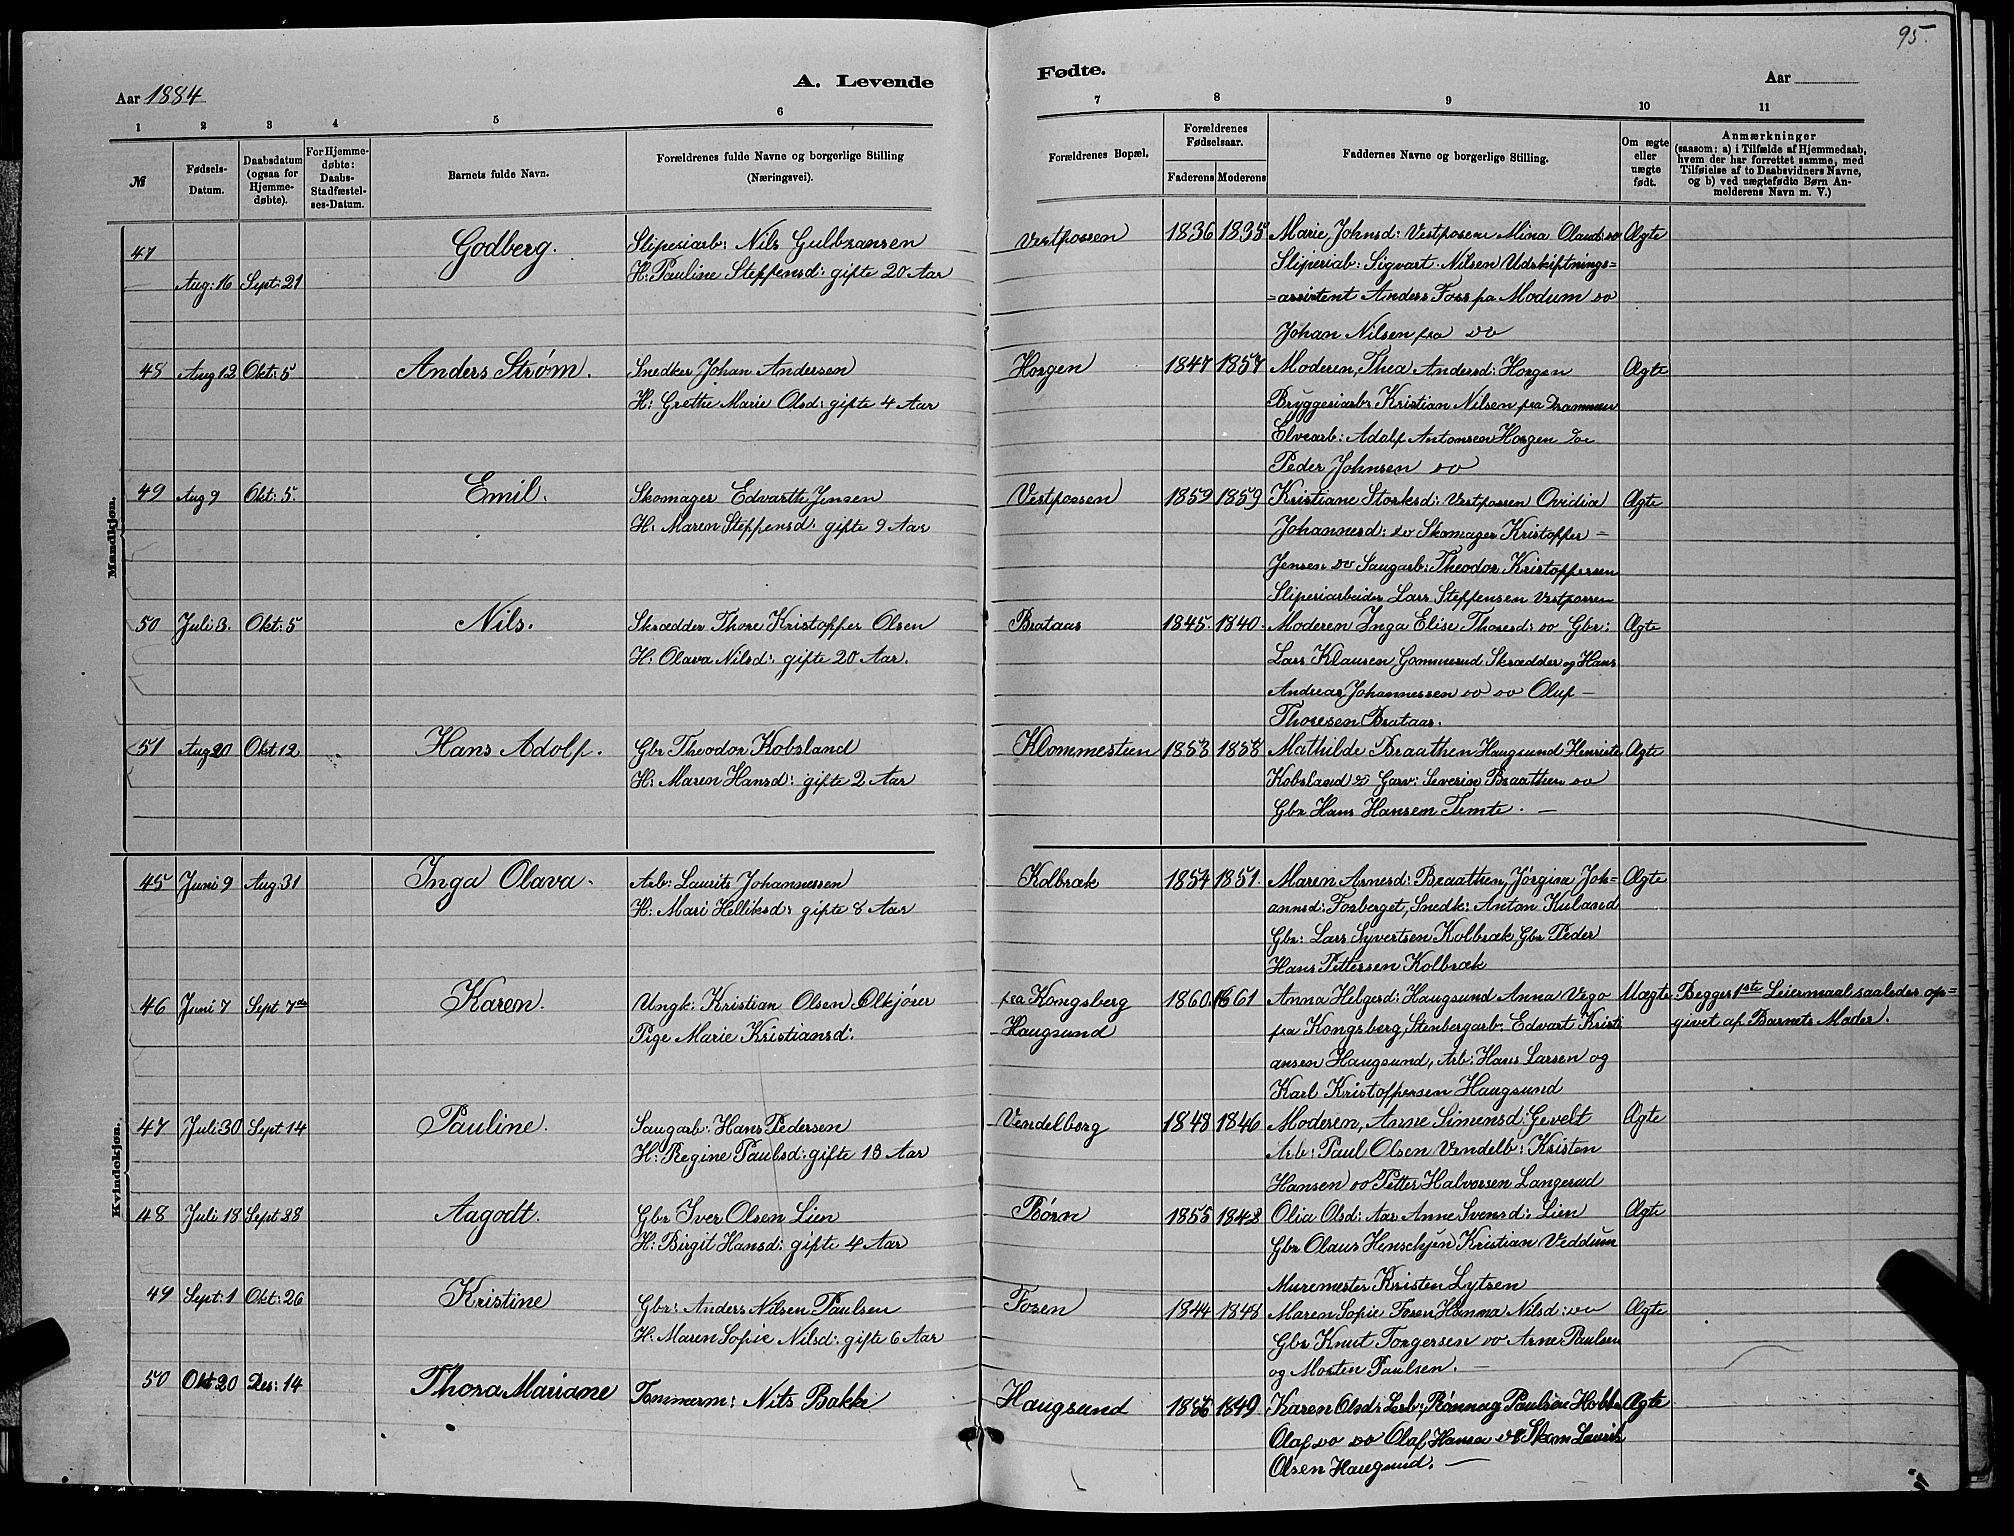 95
Aar 1884
A. Levende
Fødte.
Aar
1 2 3 4 5 6
7 8 9 10 11
№
Fødsels-
Datum.
Daabsdatum
(ogsaa for
Hjemme-
døbte).
For Hjemme-
døbte:
Daabs-
Stadfæstel-
ses-Datum.
Barnets fulde Navn.
Forældrenes fulde Navne og borgerlige Stilling
(Næringsvei).
Forældrenes Bopæl.
Forældrenes
Fødselsaar.
Faderens Moderens
Faddernes Navne og borgerlige Stilling.
Om ægte
eller
uægte
født.
Anmærkninger
(saasom: a) i Tilfælde af Hjemmedaab,
hvem der har forrettet samme, med
Tilføielse af to Daabsvidners Navne,
og b) ved uægtefødte Børn An-
melderens Navn m. V.)
Mandkjøn.
47 Aug: 16 Sept: 21 Godberg. Sliperiarb: Nils Gulbransen
H: Pauline Steffensd: gifte 20 Aar
Vestfossen 1836 1835 Marie Johnsd: Vestfossen Mina Olausd: do Ægte
Sliperiab: Sigvart Nilsen Udskiftnings=
=assistent Anders Foss fra Modum do
Johan Nilsen fra do
48 Aug 12 Okt: 5 Anders Strøm. Snedker Johan Andersen
H: Grethe Marie Olsd: gifte 4 Aar
Horgen 1847 1857 Moderen, Thea Andersd: Horgen Ægte
Bryggeriarb: Kristian Nilsen fra Drammen
Elvearb: Adolf Antonsen Horgen
Peder Johnsen do
49 Aug 9 Okt: 5. Emil. Skomager Edvarth Jensen
H: Maren Steffensd: gifte 9 Aar
Vestfossen 1859 1859 Kristiane Storksd: Vestfossen Ovidia Ægte
Johannesd: do Skomager Kristoffer –
Jensen do Saugarb: Theodor Kristoffersen
Sliperiarbeider Lars Steffensen Vestfossen
50 Juli 3. Okt: 5 Nils. Skrædder Thore Kristoffer Olsen
H: Olava Nilsd: gifte 20 Aar.
Brataas 1845. 1840. Moderen Inga Elise Thoresd: do Gbr: Ægte
Lars Klausen Gommerud Skrædder og Hans
Andreas Johannessen do do Oluf –
Thoresen Brataas.
51 Aug 20 Okt 12 Hans Adolf. Gbr Theodor Kobsland
H: Maren Hansd: gifte 2 Aar
Klommestien 1853 1858 Mathilde Braathen Haugsund Henriete Ægte
Kobsland do Garv: Severin Braathen do
Gbr Hans Hansen Temte. —
Kvindekjøn.
45 Juni 9 Aug: 31 Inga Olava. Arb: Laurits Johannessen
H: Mari Helliksd: gifte 8 Aar
Kolbræk 1854 1851. Maren Arnesd: Braathen, Jørgine Joh= Ægte
annsd: Fosberget, Snedk: Anton Kuland
Gbr: Lars Syvertsen Kolbræk Gbr Peder
Hans Pettersen Kolbræk
46 Juni 7 Sept 7de Karen. Ungk: Kristian Olsen Olkjører
Pige Marie Kristiansd:
fra Kongsberg 1860 1861 Anna Helgesd: Haugsund Anna Vego Uægte Begges 1ste Leiermaal saaledes op=
Haugsund fra Kongsberg, Stenbergarb: Edvart Kristi givet af Barnets Moder.
ansen Haugsund, Arb: Hans Larsen og
Karl Kristoffersen Haugsund
47 Juli 30 Sept 14 Pauline. Saugarb: Hans Pedersen
H: Regine Paulsd: gifte 13 Aar
Vendelborg 1848 1846 Moderen, Anne Simensd: Gevelt Ægte
Arb: Paul Olsen Vendelb: Kristen
Hansen do Petter Halvorsen Langerud
48 Juli 18 Sept 28 Aagodt. Gbr Iver Olsen Lien
H: Birgit Hansd: gifte 4 Aar
Børn 1855 1842 Olia Olsd: Aas Anne Svensd: Lien Ægte
Gbr Olaus Henschjen Kristian Veddum
Muremester Kristen Lytsen
49 Sept: 1 Okt: 26 Kristine Gbr: Anders Nilsen Paulsen
H: Maren Sofie Nilsd: gifte 6 Aar
Fosen 1844 1848 Maren Sofie Fosen Hanna Nilsd: do Ægte
Gbr Knut Torgersen do Arne Paulsen
og Morten Paulsen. —
50 Okt 20 Des: 14 Thora Mariane Tømmerm: Nils Bakke
Haugsund 1849 Karen Olsd: Rønnag Paulsen Ægte
Olaf do do Olaf Hansen Skom Laurits
Olsen Haugsund. —